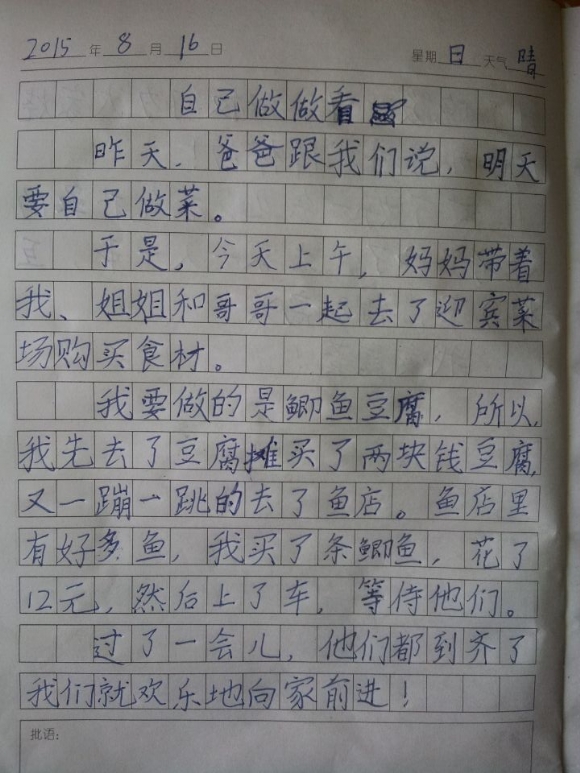 2015年8月16日 星期日 天气晴
自己做做看
昨天，爸爸跟我们说，明天
要自己做菜。
于是，今天上午，妈妈带着
我、姐姐和哥哥一起去了迎宾菜
场购买食材。
我要做的是鲫鱼豆腐，所以，
我先去了豆腐摊买了两块钱豆腐，
又一蹦一跳的去了鱼店。鱼店里
有好多鱼，我买了条鲫鱼，花了
12元，然后上了车，等待他们。
过了一会儿，他们都到齐了
我们就欢乐地向家前进！
批语：